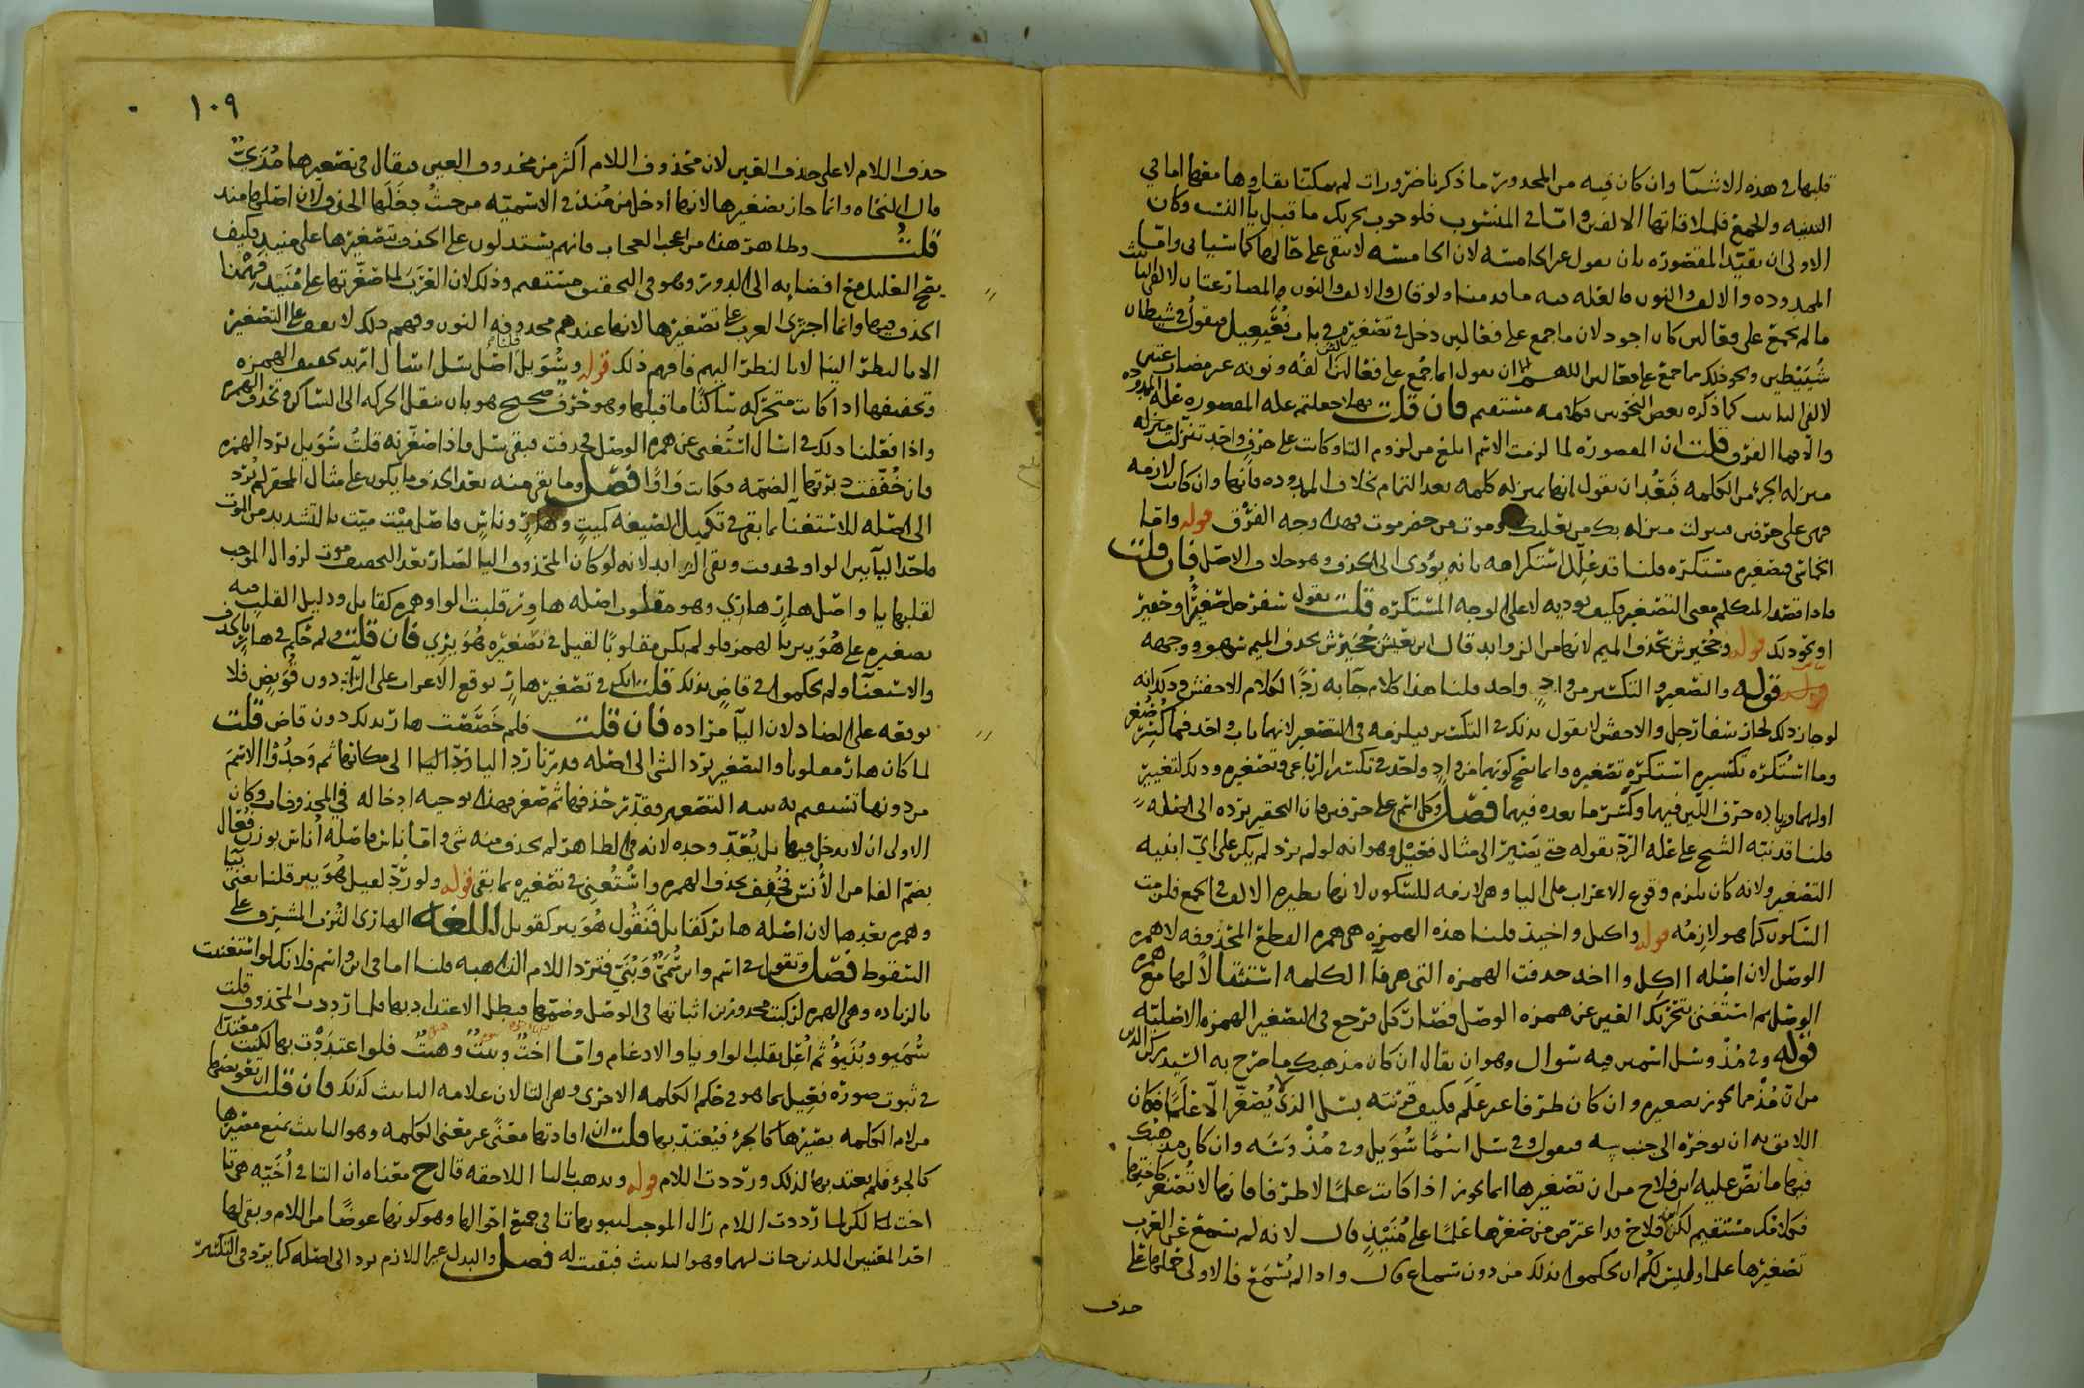 قلبها في هذه الاشيآ وان كان فيه من المحدور ما ذكرنا ضرورات لم يمكنّا بقاوها معها اما في
التثنيه والجمع فلملاقاتها الالفين واما في المنسوب فلوجوب تحريك ما قبل يآ النسب وكان
الاولى ان يقيّد المقصوره بان يقول غير الخامسه لان الخامسه لا تبقى على حالها كما سياتى واما
الممدوده والالف والنون فالعله فيه ما قدمنا ولو قال والالف والنون المضارعتان لالفى التانيث
ما لم يجمع على فعالين كان اجود لان ما جمع على فعالين دخل في تصغيره في باب فُعَيعِيل فيقول في شيطان
شُيَيْطين ونحو ذلك
لالفى التانيث كما ذكره بعض النحويين فكلامه مستقيم فان قلت فهلا جعلتم علة المقصوره علة الممدوده
والا فما الفرق قلت ان المقصوره لما لزمت الاسم ابلغ من لزوم التا وكانت على حرف واحد تنزلت منزله
منزله الجزء من الكلمه فبَعُد ان يقول انها بمنزله كلمه بعد التمام بخلاف الممدوده فانها وان كانت لازمه
فهى على حرفين فنزلت منزله بك من بعلبك وموت من حضرموت فهذا وجه الفرق قوله واما
الخماسى فتصغيره مستكره قلنا قد علّل استكراهه بانه يؤدى الى الحذف وهو خلاف الاصل فان قلت
فاذا قصد المتكلم معنى التصغير فكيف يوديه لا على الوجه المستكره قلت يقول سفرجل صغير او حقير
او نحو ذلك قوله وجُحَيرش بحذف الميم لانها من الزوايد قال ابن يعيش جُحَيْرش بحذف الميم سهو ووجهه
قوله والتصغير والتكسير من وادٍ واحد قلنا هذا كلام جآ به ردّا لكلام الاخفش وذلك انه
لو جاز ذلك لجاز سفارجل والاخفش لا يقول بذلك في التكسير فيلزمه في التصغير لانهما باب واحد
وما استُكره تكسيره استكره تصغيره وانما صح كونهما من وادٍ واحد في تكسير الرباعى وتصغيره وذلك لتغيير
اولهما وزياده حرف اللين فيهما وكسر ما بعده فيهما فصل وكل اسم على حرفين فان التحقير يرده الى اصله
قلنا قد نبّه الشيخ على علة الردّ بقوله حتى يصير الى مثال فعيل وهو انه لو لم يرد لم يكن على اىّ ابنيه
التصغير ولانه كان يلزم وقوع الاعراب على اليا وهى لازمه للسكون لانها نظيره الالف في الجمع فلزمت
السكون كما هو لازمُه قوله واكل واخيذ قلنا هذه الهمزه هى همزه القطع المحذوفه لا همزه
الوصل لان اصله ااكل وااخذ حذفت الهمزه التى هى فآ الكلمه استثقالاً لها مع همزه
الوصل ثم استُغنى بتحريك العين عن همزه الوصل فصار كل فرجع في التصغير الهمزه الاصليه
قوله وفي مُذْ وسل اسمين فيه سوال وهو ان يقال ان كان مذهبك ما صرح به السيد ركن الدين
من انّ مُذْ مما يجوز تصغيره وان كان طرفا غير عَلَم فكيف قرنته بسل الذى لا يُصغّر الّا علَمًا فكان
اللائق به ان يوخره الى جنب فيقول وفي سل اسمًا سُوَيل وفي مُذْ وسَه وان كان مذهبك
فيها ما نصّ عليه ابن فلاح من ان تصغيرها انما يجوز اذا كانت علمًا لا طرفا فانها لا تُصغر
فكلامك مستقيم لكن ابن فلاح قد اعترض من صغرها علَمًا على مُنَيْذٍ قال لانه لم يسمع عن العرب
تصغيرها علما وليس لكم ان تحكموا بذلك من دون سماع قال واذا لم يُسْمَع فالاولى حملها على
حذف
١٠٩
حذف اللام لا على حذف العين لان محذوف اللام اكثر من محذوف العين فيقال في تصغيرها مُذَىّ
قال النحاه وانما جاز تصغيرها لانها ادخل من مُنذ في الاسميّه من حيثُ دخَلَها الحذف ولان اصلها منذ
قلتُ وظاهر هذا من اعجب العجاب فانهم يستدلون على الحذف بتصغيرها على منيذ فكيف
يصح التعليل مع افضايه الى الدور وهو في التحقيق مستقيم وذلك لان العَرَبَ لما صغّرتها على مُنَيْذ فهِمْنا
الحذف فيها وانما اجترى العرب على تصغيرها لانها عندهم محذوفه النون وفهمهم ذلك لا يقف على التصغير
الا بالنظر الينا لا بالنظر اليهم فافهم ذلك قوله وسُوَيل قلنا اصل سل اسأل اريد تخفيف الهمزه
وتخفيفها اذا كانت متحركه ساكنًا ما قبلها وهو حرف صحيح هو بان تنقل الحركه الى الساكن وتحذف الهمزه
واذا فعلنا ذلك في اسال استُغنى عن همزه الوصل فحذفت فبقى سل فاذا صغّرته قلتَ سُوَيل برد الهمزه
فان خُفّفت دبّرتها الضمّه فكانت وَاوًا فصل وما بقى منه بعد الحذف ما يكون على مثال المحقر لم يُرَد
الى اصله للاستغنآ بما بقى في تكميل الصيغه كميت وهارٍ وناسٍ فاصل ميْت ميّت بالتشديد من الموت
لقلبها يا واصل هارٍ هارى وهو مقلوب اصله هاوِر قلبت الواو همزه كقائل ودليل القلب فيه
تصغيره على هُوَيير بيا لهمزه ولو لم يكن مقلوبًا لقيل في تصغيره هُوَيرى فان قلت
والاستغنآ ولم يحكموا في قاضٍ بذلك قلت
توقعه على الضاد لان اليآ مراده فان قلت فلم خَصّصت هار بذلك دون قاض قلت
لما كان هار مقلوبا والتصغير يرد الشى الى اصله
الاولى ان لا يدخل فيها بل يُعَدّ وحده لانه في الظاهر لم يحذف منه شى واما ناس فاصله أُناس بوزن فُعَال
بضم الفا من الأُنس فخُفِف بحذف الهمزه واستُغنى في تصغيره بما بقى قوله ولو رُدّ لقيل هُوَيير قلنا يعنى بيا
وهمزه بعدها لان اصله هائر كقائل فتقول هُوَيير كقويل اللغه الهارى الجُرف المشرف على
السقوط فصل وتقول في اسم وابن سُمَىّ وبُنَىّ فترد اللام الذاهبه قلنا اما في ابن واسم فلانك لو استغنيت
بالزياده وهى الهمزه لزكبت محدورين اثباتها في الوصل وضمّها فبطل الاعتداد بها فلما رددت المحذوف قلت
سُمَيو وبُنَيوٌ ثم اُعِلّ بقلب الواو يا والادغام واما اختٌ وبنتٌ وهنتٌ فلو اعتدَدْت بها لكنت معتدا
في ثبوت صوره فُعَيل بما هو في حكم الكلمه الاخرى وهى التا لان علامه التانيث كذلك فان قلت
من لام الكلمه يصيّرها كالجزء فيُعتدّ بها قلت ان افادتها معنًى غير معنى الكلمه وهو التانيث يمنع مصيرها
كالجزء فلم يعتد بها لذلك ورُددت اللام قوله وتذهب بالتا اللاحقه قال ح معناه ان التا في اُخَيّه هى تا
اخت لكن لما رُددت اللام زال الموجب لثبوتها تا في جميع احوالها وهو كونها عوضًا من اللام وبقى لها
احد المعنيين اللذين جات لهما وهو التانيث فبقيت له فصل والبدل غير اللازم يرد الى اصله كما يرد في التكسير